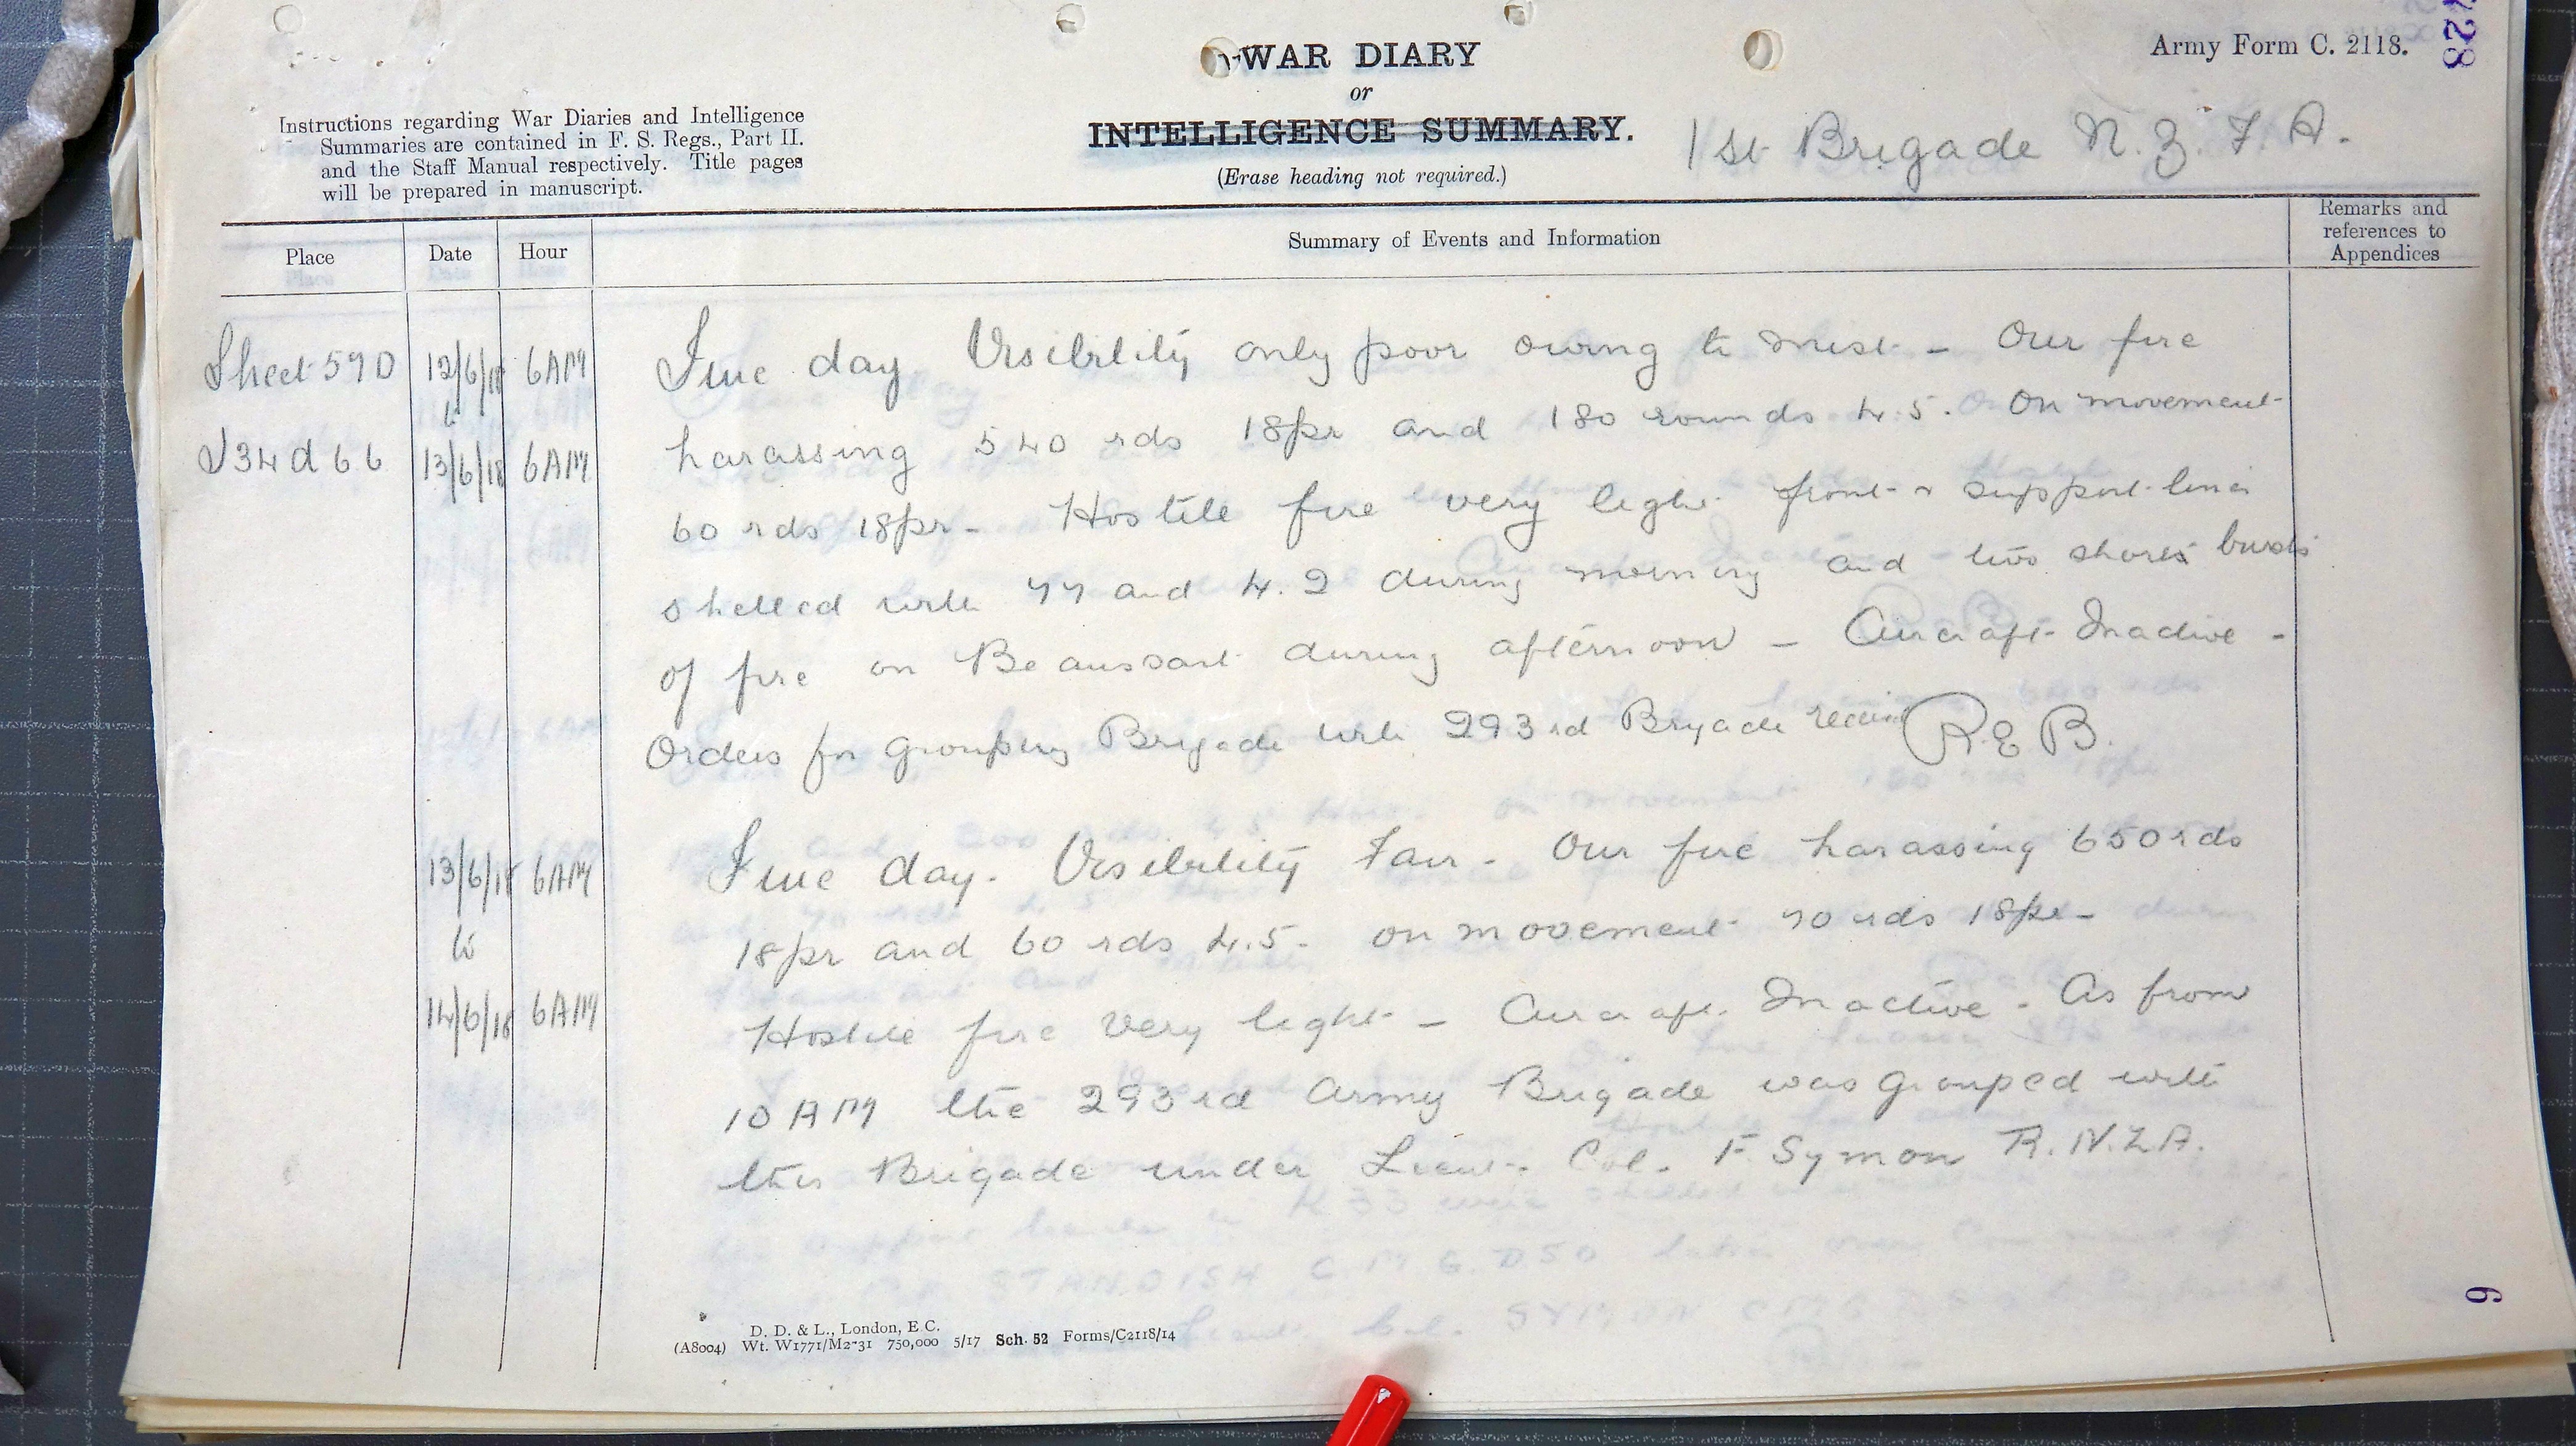 WAR DIARY
or
INTELLIGENCE SUMMARY.
(Erase heading not required.)
Army Form C. 2118.
228
1st Brigade N.Z.F.A.
Instructions regarding War Diaries and Intelligence
Summaries are contained in F. S. Regs., Part II.
and the Staff Manual respectively. Title pages
will be prepared in manuscript.
Place
Date
Hour
Summary of Events and Information
Remarks and
references to
Appendices
Sheet 57D 12/6/18 6AM Fine day Visibility only poor owing to mist - Our fire
to
harassing 540 rds 18pr and 180 rounds 4.5. On movement
J34d66 13/6/18 6AM
60 rds 18pr - Hostile fire very light front & support lines
shelled with 77 and 4.2 during morning and two short bursts
of fire on Beaussart during afternoon - Aircraft Inactive -
Orders for grouping Brigade with 293rd Brigade received R.E.B.
13/6/18 6AM Fine day. Visibility Fair - Our fire harassing 650 rds
to 18pr and 60 rds 4.5 - on movement 70 rds 18pr -
14/6/18 6AM Hostile fire very light - Aircraft Inactive - As from
10 AM the 293rd Army Brigade was grouped with
this Brigade under Lieut. Col. F Symon R.N.Z.A.
D. D. & L., London, E.C.
(A8004) Wt. W1771/M2-31 750,000 5/17 Sch. 52 Forms/C2118/14
9